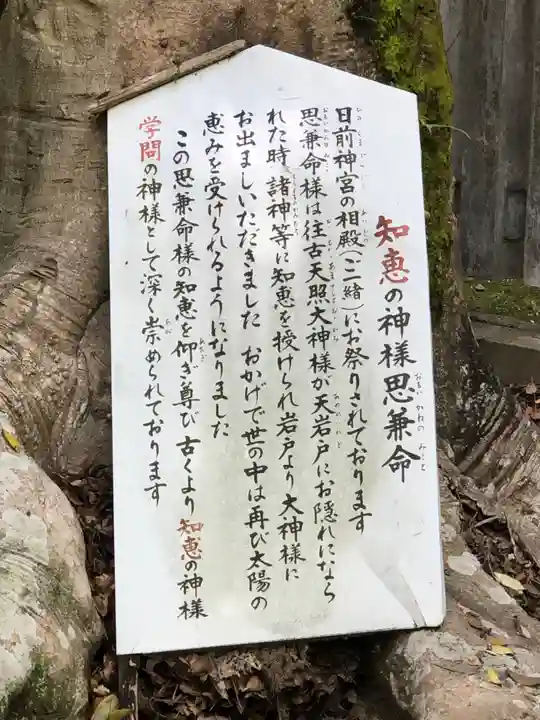 知恵の神様思兼命
日前神宮の相殿(ご一緒)にお祭りされております
思兼命様は往古天照大神様が天岩戸にお隠れになら
れた時 諸神等に知恵を授けられ岩戸より 大神様に
お出ましいただきました おかげで世の中は再び太陽の
恵みを受けられるようになりました
この思兼命様の知恵を仰ぎ尊び 古くより 知恵の神様
学問の神様として深く崇められております